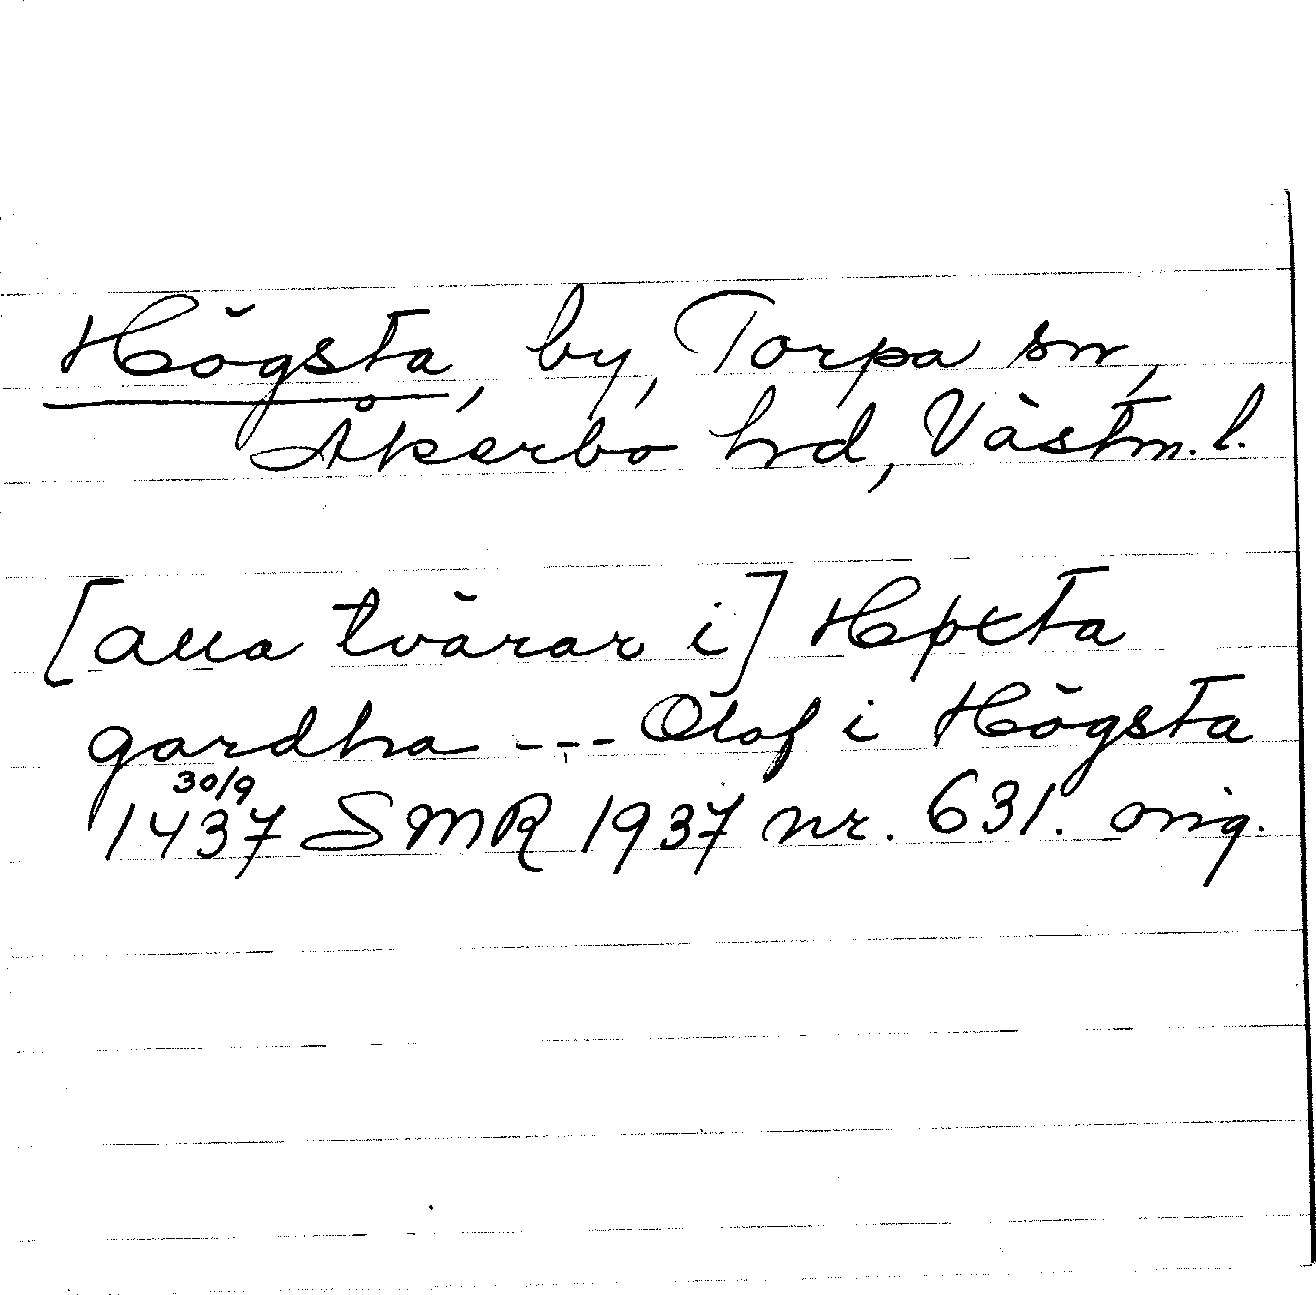 Högsta, by, Torpa sn,
Åkerbo hrd, Västm. l.
[alla tvärar i] Høxta
gardha --- Olof i Högsta
30/9
1437 SMR 1937 nr. 631. orig.